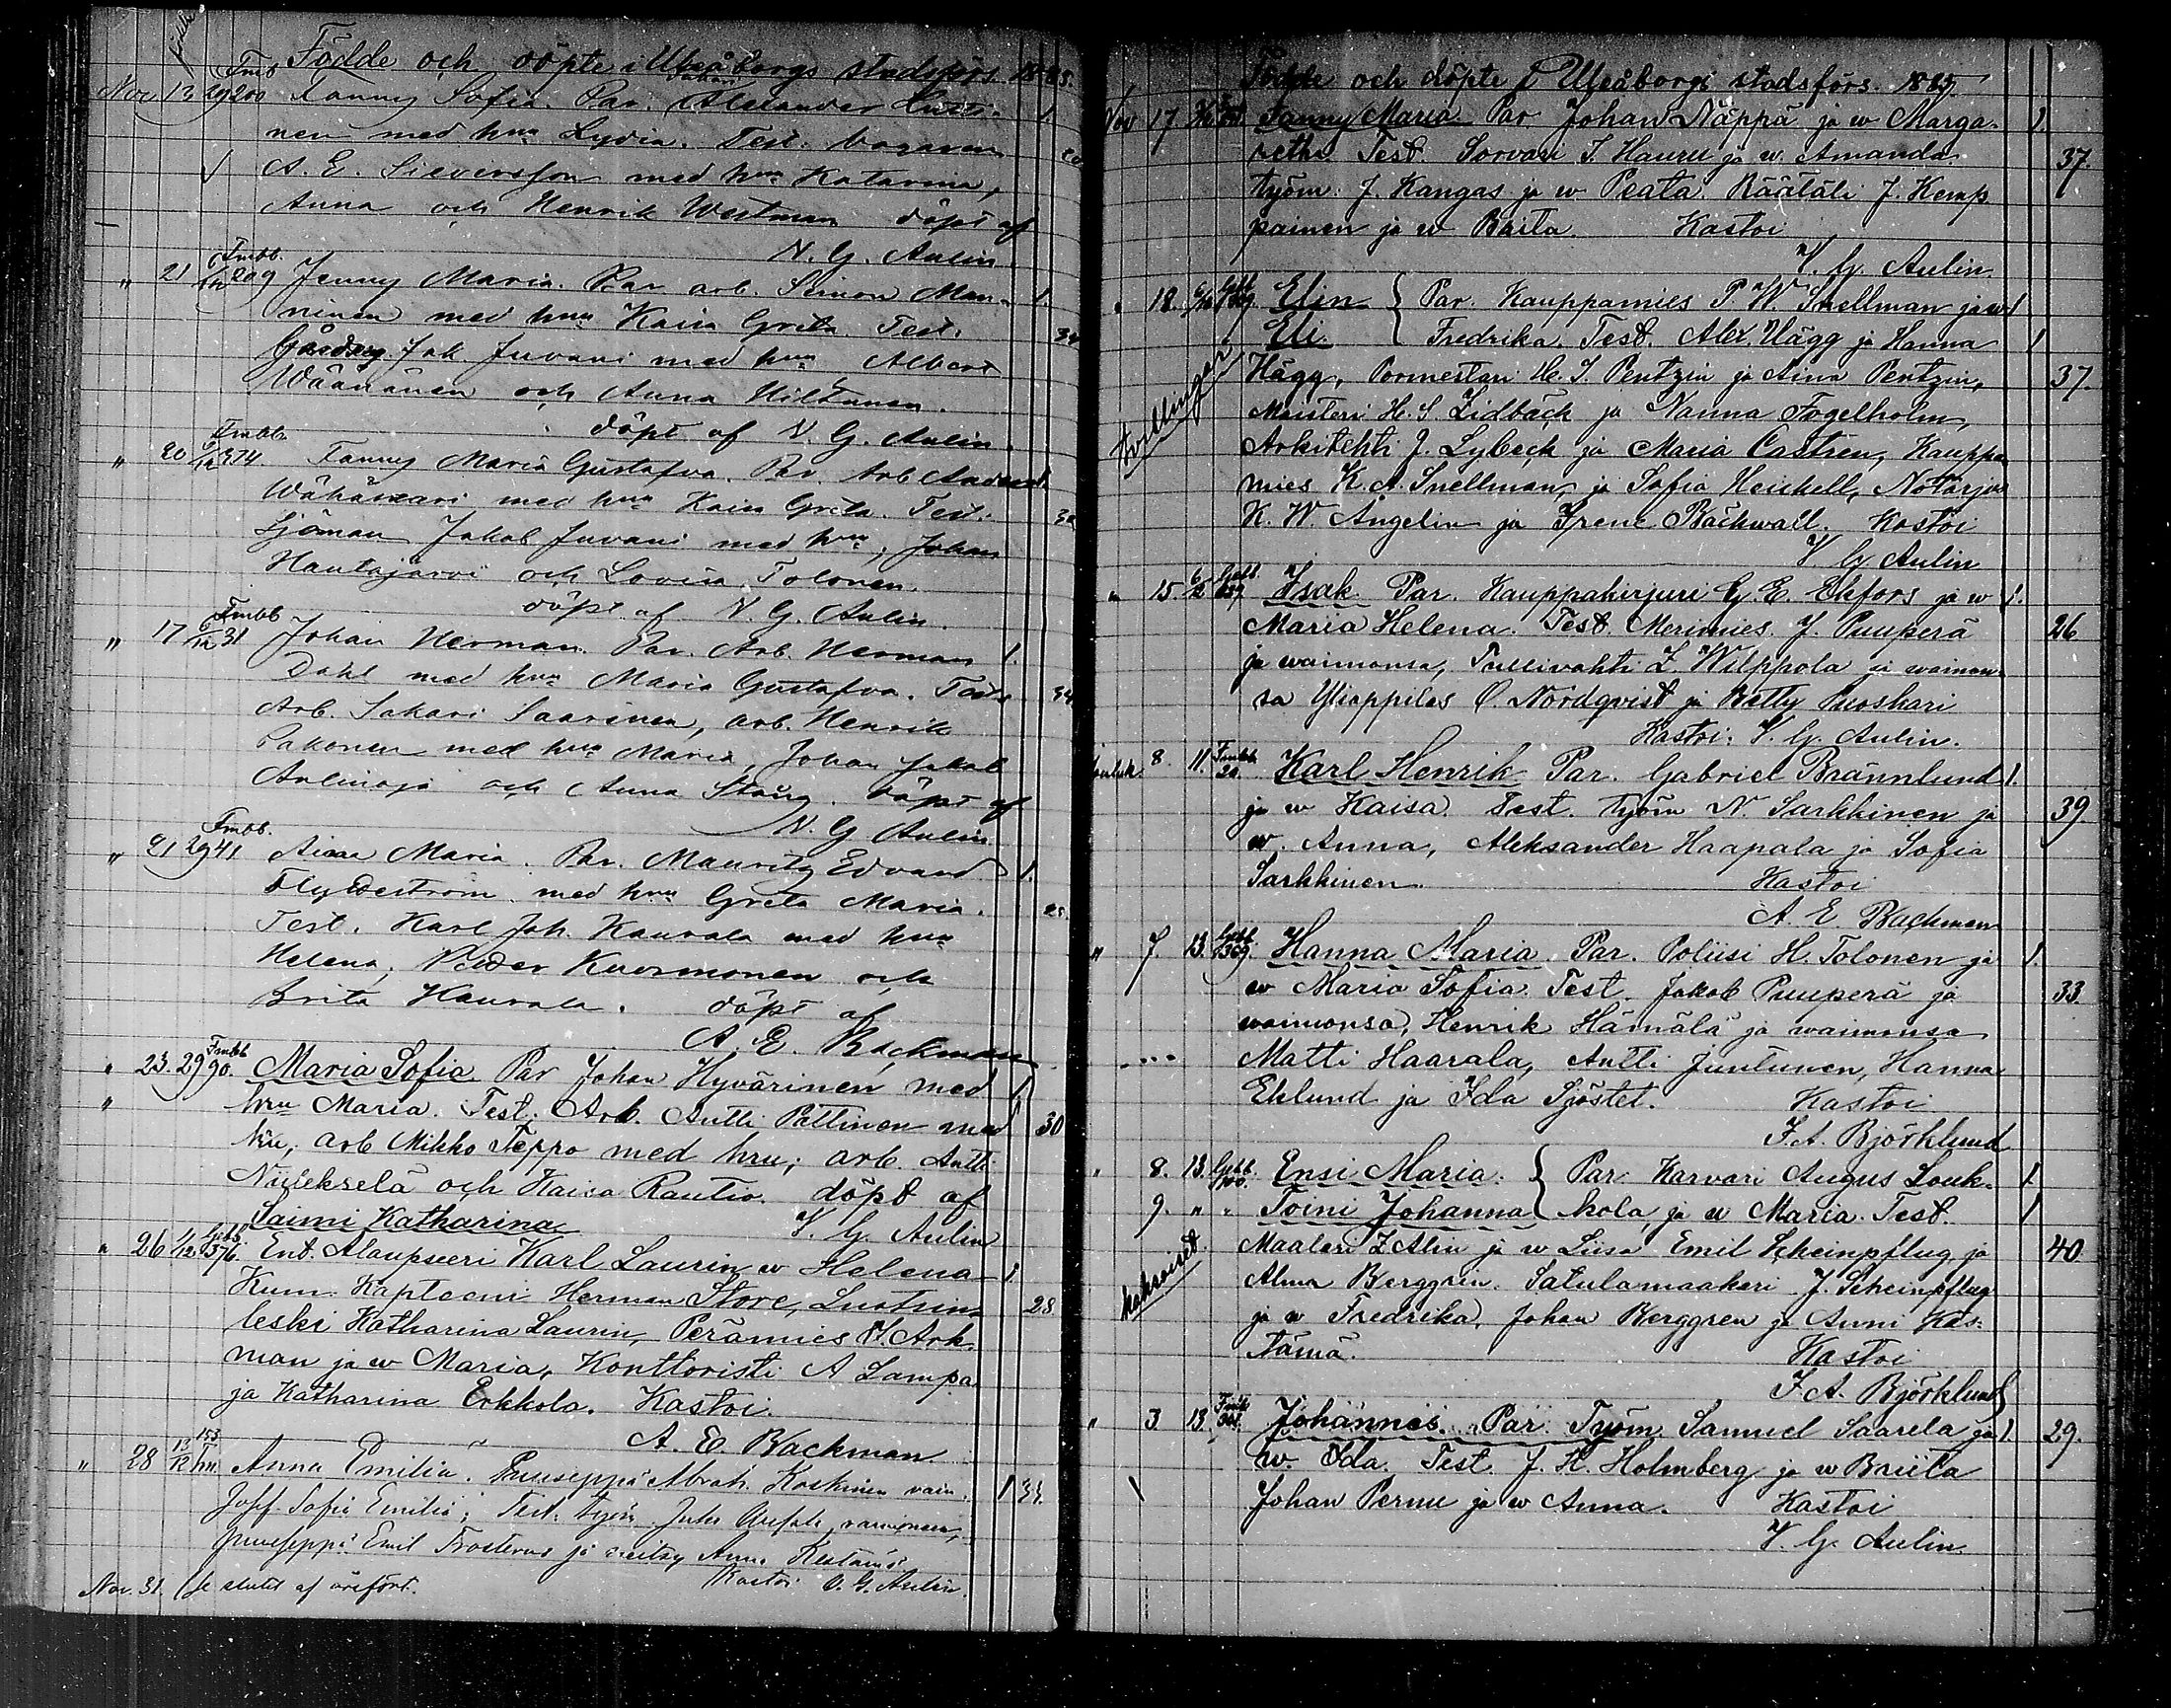 Födde och döpte i Uleåborgs stadsförs. 1885.
Nov 13 29 Fmb 200 Fanny Sofia. Par. Alexander Hutti- 1.
nen med hru Lydia. Test. bagaren
A. E. Sieversson med hru Katarina,
Anna och Henrik Westman döpt af
V. G. Aulin
" 21 6/12 Fmbb. 209 Jenny Maria. Par arb. Simon Man- 1.
ninen med hru Kaisa Greta Test. 34
Gårdäg. Joh. Juvani med hru Albert
Wäänänen och Anna Hiltunen.
döpt af V. G. Aulin
" 20 6/12 Fmbb. 374. Fanny Maria Gustafva. Par. Arb Anders 1.
med hru Kaisa Greta. Test.
Sjöman Jakob Juvani med hru, Johan
Hautajärvi och Lovisa Tolonen.
döpt af V. G. Aulin.
" 17 6/12 Fmbb 31 Johan Herman. Par. Arb. Herman 1.
Dahl med hru Maria Gustafva. Test 34
Arb. Sakari Saarinen, arb. Henrik
Pakonen med hru Maria, Johan Jakob
och Anna Stång. döpt af
V. G Aulin
" 21 29 Fmbb. 41 Aina Maria. Par. Mauritz Edvard 1.
med hru Greta Maria.
Test. Karl Joh. Kaurala med hru
Helena, Peder Kuosmonen och
Brita Kaurala. döpt af
A. E. Backman
" 23. 29 Fmbb 90. Maria Sofia Par Johan Hyvärinen med 1.
" hru Maria. Test. Arb. Antti Pättinen med 30
hru, arb Mikko Teppo med hru; arb. Antti
Niilekselä och Kaisa Rautio. döpt af
Saimi Katharina V. G. Aulin
" 26 1/12 Gebb. 376. Ent. Alaupseeri Karl Laurin w Helena 1.
Kum. Kapteeni Herman Store, Luotsin 28
leski Katharina Laurin, Perämies H. Ark-
man ja w Maria, Konttoristi A Lampa
ja Katharina Erkkola. Kastoi.
A. E. Backman
" 28 13/12 153 Anna Emilia. Puuseppä Abrah. Koskinen vaim. 1
Sofia Emilia; Test. työm.
Puuseppä Emil Frosterus ja neitsy Anna
Kastoi V. G. Aulin.
Nov. 31.
Födde och döpte i Uleåborgs stadsförs. 1885
Nov 17 Fanny Maria Par Johan Näppä ja w Marga- 1.
retha Test Sorvari J. Hauru ja w. Amanda 37.
työm: J. Kangas ja w Peata. Räätäli J. Kemp
painen ja w Brita Kastoi
V. G. Aulin
" 18. 6/12 Elin Par. Kauppamies P. W. Snellman ja w 1
Eli. Fredrika Test. Alex. Hägg ja Hanna 1
Hägg, Pormestari H. J. Pentzin ja Aina Pentzin, 37.
Maisteri H. S. Zidbäck ja Nanna Fogelholm,
Arkitehti J. Lybeck ja Maria Castrén, Kauppa
mies K. A. Snellman, ja Sofia Heickell, Notarjus
K. W. Ångelin ja Irene Bäckwall. Kastoi
V. G. Aulin
" 15. 6/12 Isak Par. Kauppakirjuri G. E. Ekfors ja w 1.
Maria Helena. Test. Merimies J. Puuperä 26
ja waimonsa, Tullivahti Z. Wilppola ja waimon-
sa Yliappilas O. Nordqvist ja Betty Puoskari
Kastoi: V. G. Aulin.
Jouluk. 8. 11. Fmbb 20. Karl Henrik Par. Gabriel Brännlund 1.
ja w Kaisa. Test. Työm N. Sarkkinen ja 39
w. Anna, Aleksander Haapala ja Sofia
Sarkkinen. Kastoi
A. E. Backman
" 7. 13. Gebb 369. Hanna Maria. Par. Poliisi H. Tolonen ja 1.
w Maria Sofia. Test. Jakob Puuperä ja 33.
waimonsa, Henrik Härnälä ja waimonsa
Matti Haarala, Antti Juntunen, Hanna
Eklund ja Ida Sjöstet. Kastoi
F. A. Björklund
" 8. 13. Ensi Maria. Par. Karvari Augus Louk- 1.
9. " " Toini Johanna kola, ja w Maria. Test. 1
kaksoiset. Maalari Z Alin ja w Liisa Emil Scheinpflug ja 40.
Alma Berggrén. Satulamaakari J. Scheinpflug
ja w Fredrika, Johan Berggren ja Anni Käs-
tämä. Kastoi
F. A. Björklund
" 3 13. Johannes. Par. Työm Samuel Saarela ja 1. 29.
w. Ida. Test. J. H. Holmberg ja w Briita
Johan Pernu ja w Anna. Kastoi
V. G. Aulin